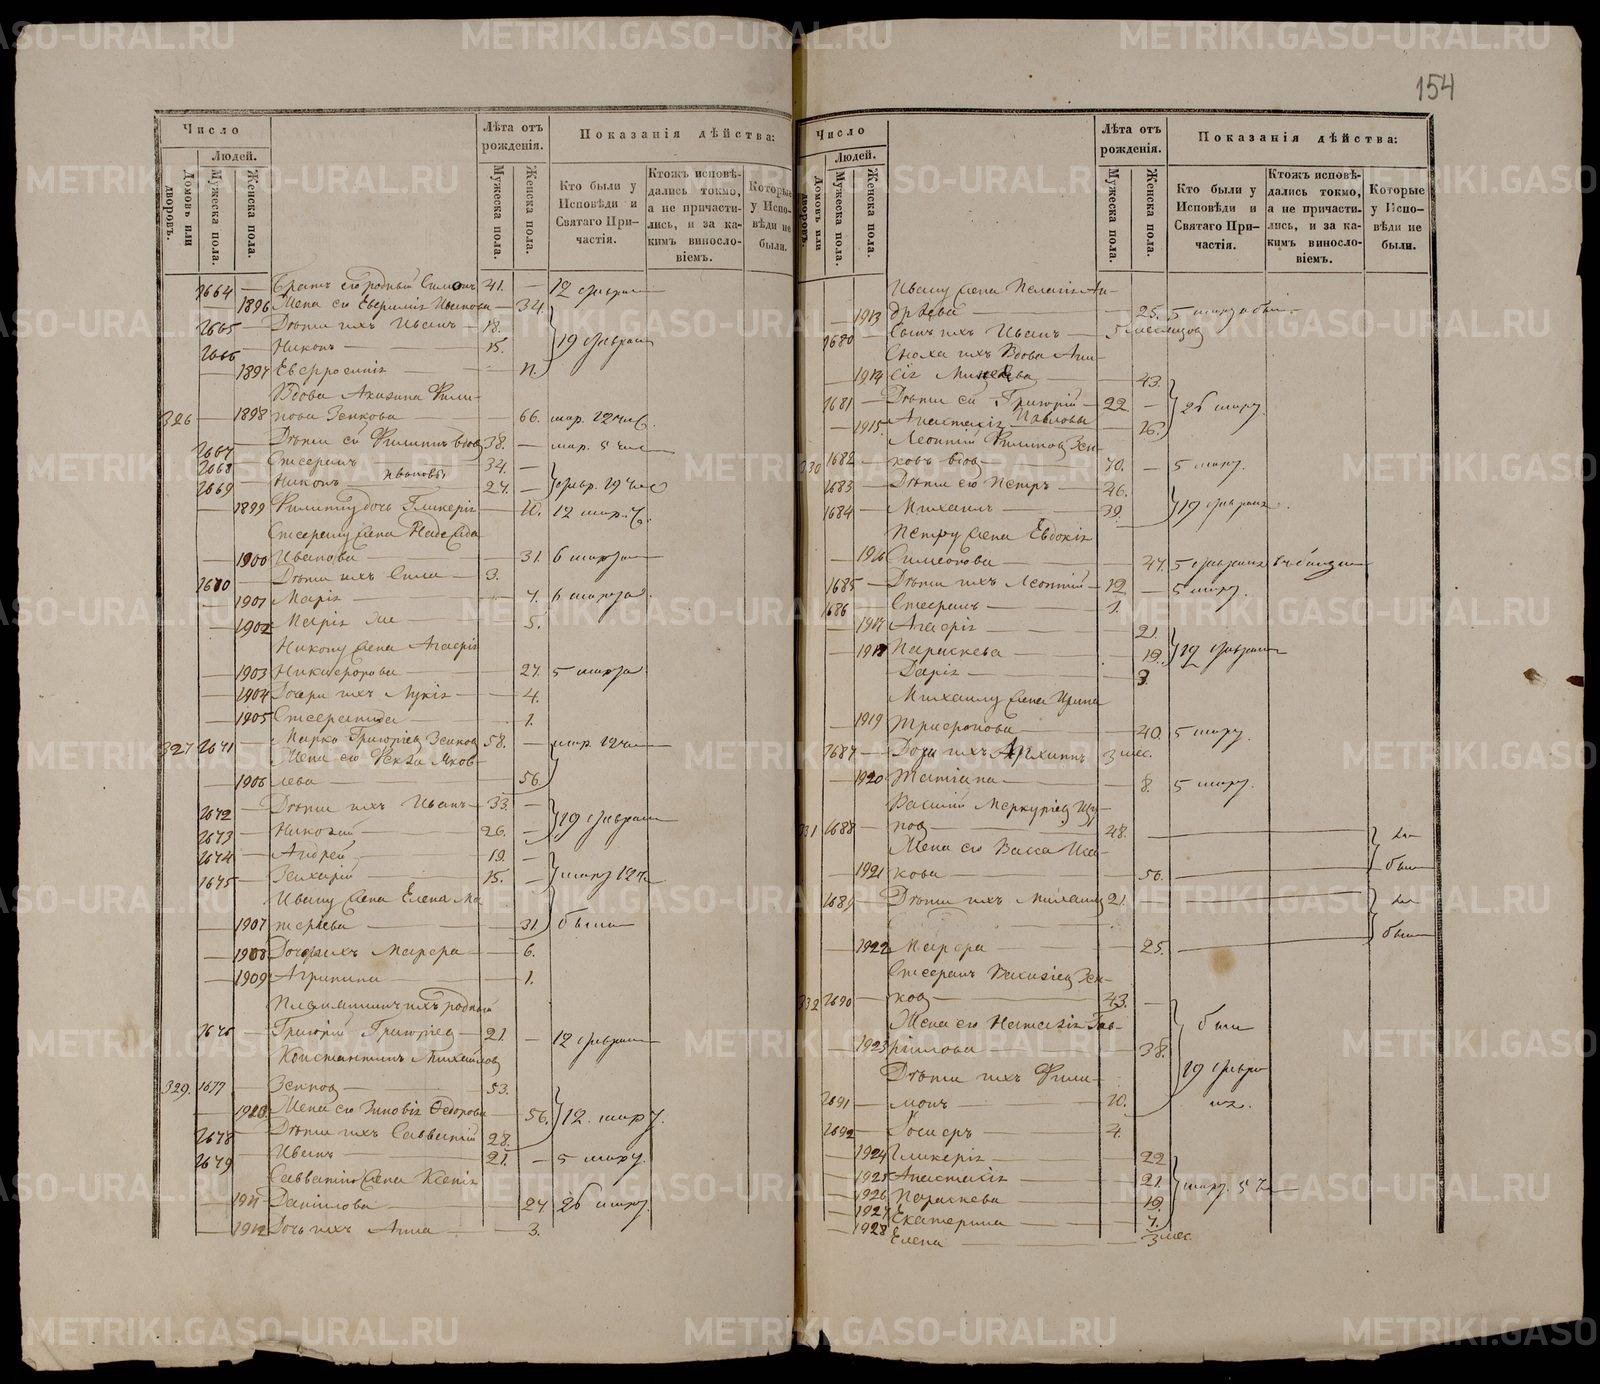 154
Число
Людей.
Домовъ или дворовъ.
Мужеска пола.
Женска пола.
Лѣта отъ рожденія.
Мужеска пола.
Женска пола.
Показанія дѣйства:
Кто были у Исповѣди и Святаго Причастія.
Ктожъ исповѣдались токмо, а не причастились, и за какимъ винословіемъ.
Которые у Исповѣди не были.
1664 — Братъ его родный Симонъ 41. — 12 февраля
— 1896 Жена его Евфимія Иванова — 34.
1665 — Дѣти ихъ Иванъ — 18.
1666 — Никонъ — 15. — 19 февраля
— 1897 Евфросинія — 11.
Вдова Акилина Фили-
326 — 1898 пова Зенкова — 66. мар. 12 чис.
1667 — Дѣти ея Филиппъ вдов 38. — мар. 5 чис
1668 — Стефанъ — 34. —
1669 — Никонъ Ивановы 27. — февр. 19 чис
— 1899 Филиппу дочь Гликерія — 10. 12 мар. ч.
Стефану жена Надежда
— 1900 Иванова — 31. 6 марта
1670 — Дѣти ихъ Сила — 3.
— 1901 Марія — 7. 6 марта
— 1902 Марія же — 5.
Никону жена Агафія
— 1903 Никифорова — 27. 5 марта
— 1904 Дочери ихъ Лукія — 4.
— 1905 Стефанида — 1.
327 1671 — Марко Григорьев Зенков 58. — мар. 12 чис
Жена его Фекла Яков-
— 1906 лева — 56.
1672 — Дѣти ихъ Иванъ — 33. —
1673 — Николай — 26. — 19 февраля
1674 — Андрей — 19. —
1675 — Зенхарій — 15. — марта 12 ч.
Ивану жена Елена Ма-
— 1907 тфѣева — 31. были
— 1908 Дочери ихъ Марфа — 6.
— 1909 Агрипина — 1.
Племянникъ ихъ родный
1676 — Григорій Григорьев — 21. — 12 февраля
Константинъ Михайлов
329. 1677 — Зенков — 53.
— 1910 Жена его Зиновія Ѳедорова — 56. 12. марта.
1678 — Дѣти ихъ Савватій 28.
1679 — Иванъ — 21. — 5 марта
Савватію жена Ксенія
— 1911 Данилова — 27 26 марта
— 1912 Дочь ихъ Анна — 3.
Число
Людей.
Домовъ или дворовъ.
Мужеска пола.
Женска пола.
Лѣта отъ рожденія.
Мужеска пола.
Женска пола.
Показанія дѣйства:
Кто были у Исповѣди и Святаго Причастія.
Ктожъ исповѣдались токмо, а не причастились, и за какимъ винословіемъ.
Которые у Исповѣди не были.
Ивану жена Пелагія Ан-
— 1913 дрѣева — 25. 5 марта были
1680 — Сынъ ихъ Иванъ — 5 месяцов
Сноха ихъ Вдова Ани-
— 1914 сія — 43.
1681 — Дѣти ея Григорій — 22. — 26 марта.
— 1915 Анастасія Павловы — 16.
Леонтій Филипов Зен-
330 1682 — ковъ вдов — 70. — 5 марта.
1683 — Дѣти его Петръ — 46.
1684 — Михаилъ — 39. 19 февраля.
Петру жена Евдокія
— 1916 Симеонова — 47. 5 февраля
1685 — Дѣти ихъ Леонтій — 12. — 5 марта.
1686 — Стефанъ — 1.
— 1917 Агафія — 21.
— 1918 Параскева — 19. 19 февраля
Дарія — 3.
Михаилу жена Ирина
— 1919 Трифонова — 40. 5 марта.
1687 — ихъ Архипъ — 3 мес.
— 1920 Татіана — 8. 5 марта.
Василій Меркурьев Щу-
331 1688 — ков — 48. — не
Жена его Васса Иса-
— 1921 кова — 56. — были
1689 — Дѣти ихъ Михаилъ 21. — не
— 1922 Марфа — 25. — были
Стефанъ Василіев Зен-
332 1690 — ков — 43. —
Жена его Наталія Гав-
— 1923 ріилова — 38. были
Дѣти ихъ Фили-
1691 — монъ — 10. 19 февраля.
1692 — Іосифъ — 4.
— 1924 Гликерія — 22.
— 1925 Анастасія — 21.
— 1926 Параскева — 19. марта. 5 ч.
— 1927 Екатерина — 7.
— 1928 Елена — 3 мес.
METRIKI.GASO-URAL.RU